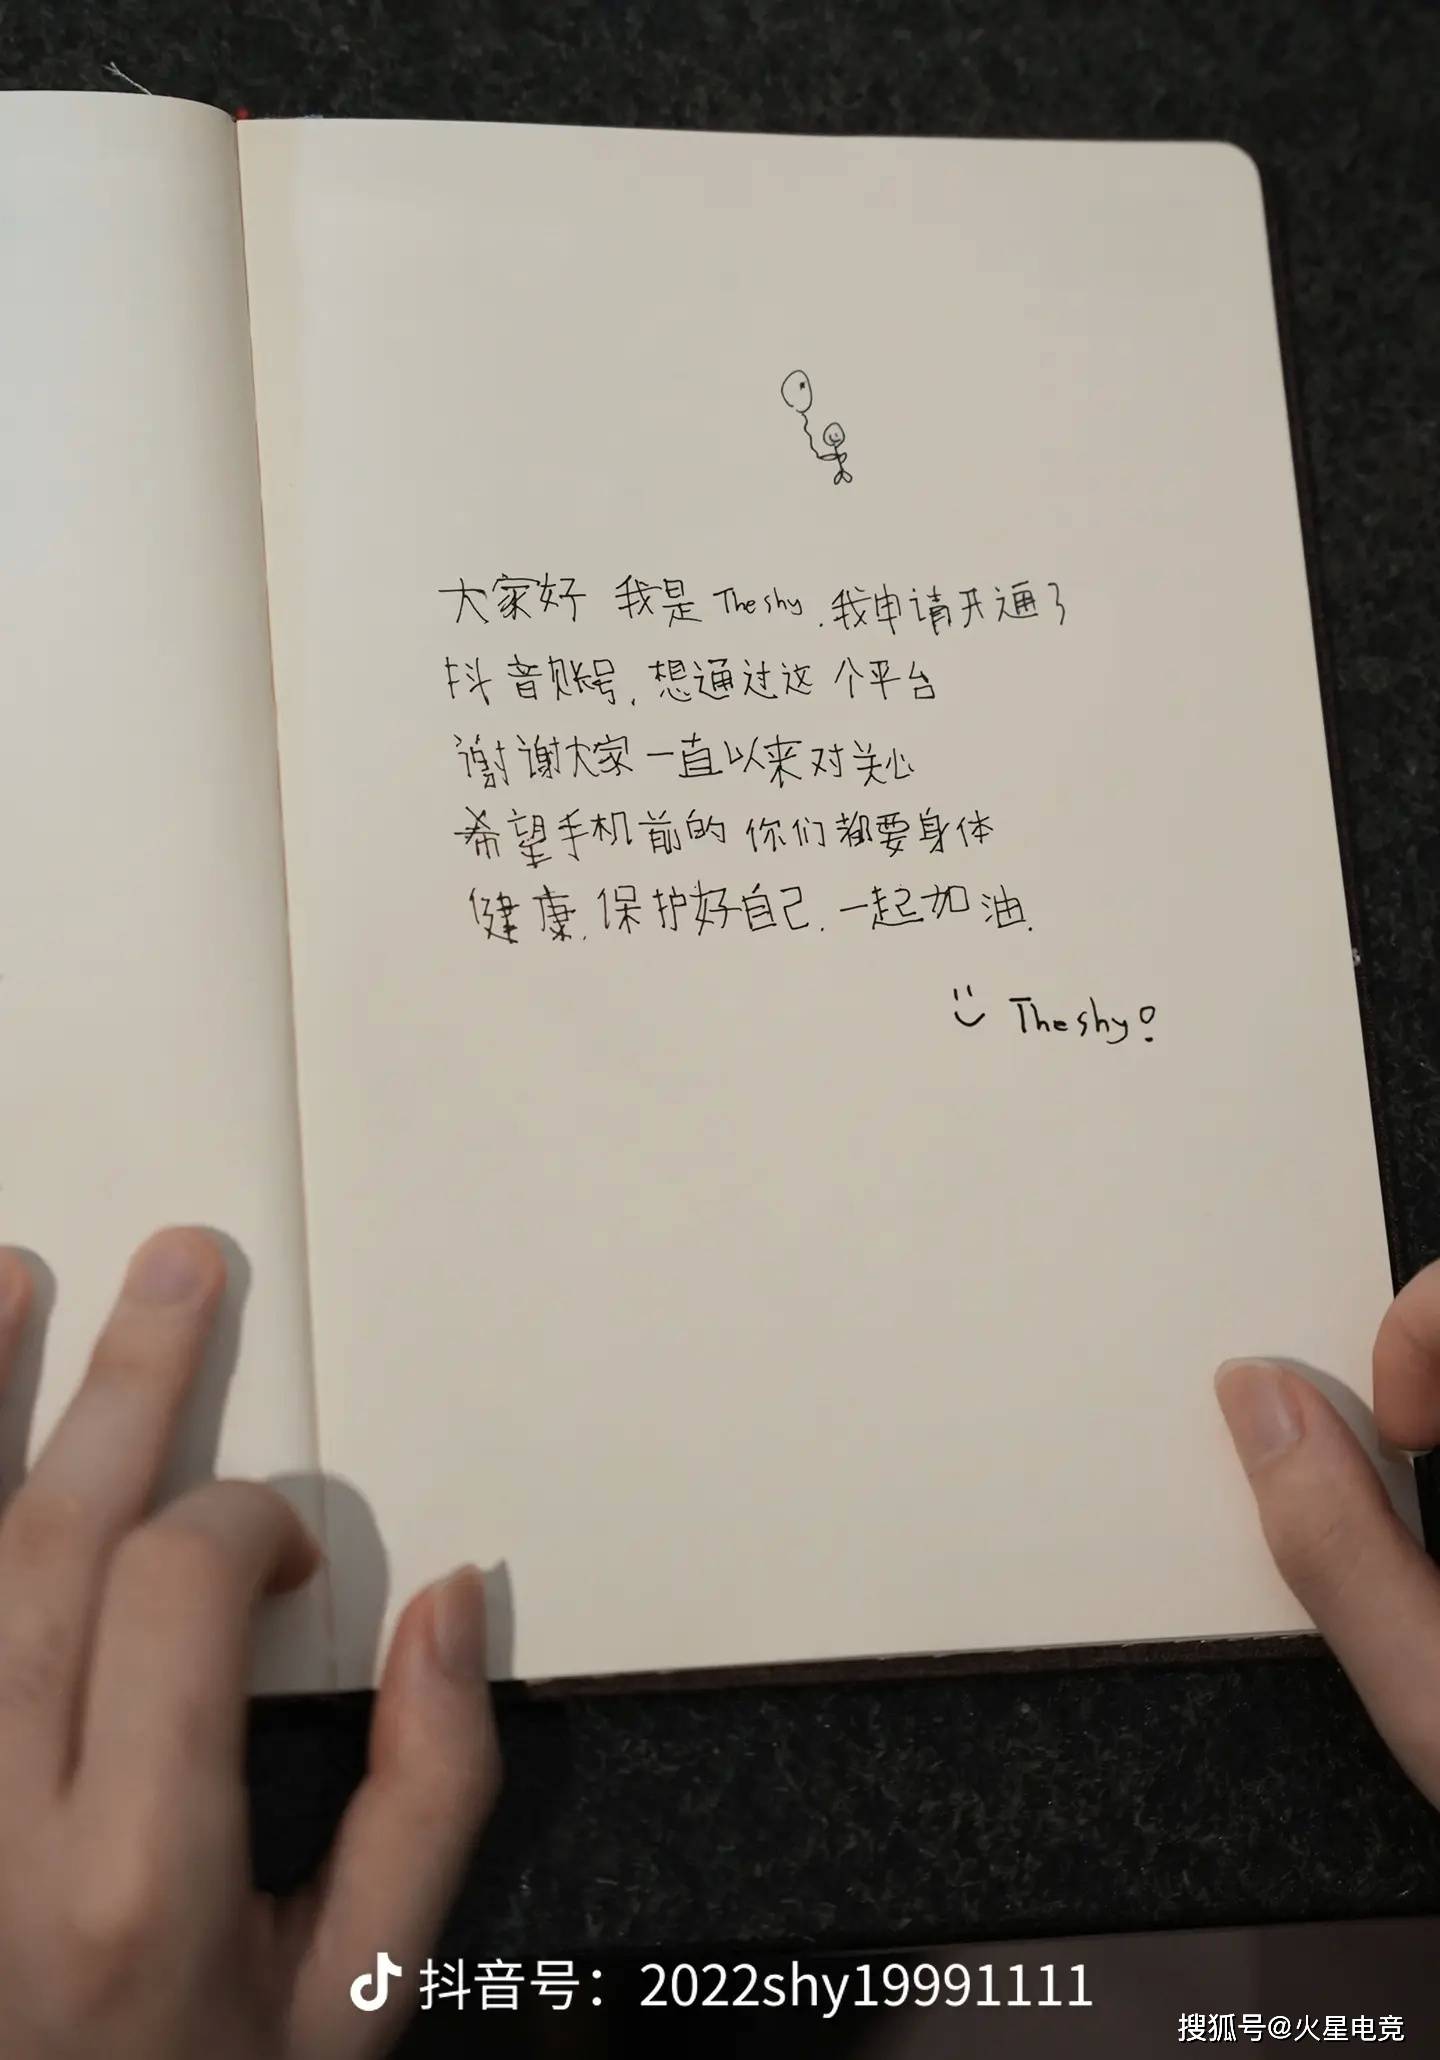 大家好 我是Theshy.我申请开通了
抖音账号,想通过这个平台
谢谢大家一直以来对关心
希望手机前的你们都要身体
健康,保护好自己.一起加油.
Theshy!
抖音号：2022shy19991111
搜狐号@火星电竞